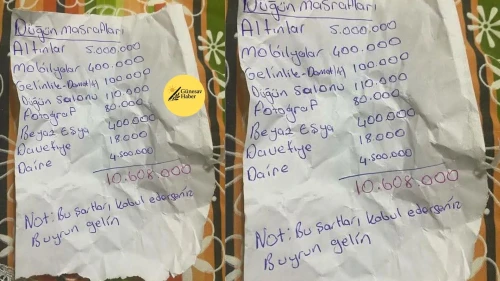 Düğün Masrafları
Altınlar 5.000.000
Mobilyalar 400.000
Gelinlik-Damatlık 100.000
Düğün Salonu 110.000
Fotoğraf 80.000
Beyaz Eşya 400.000
Davetiye 18.000
Daire 4.500.000
10.608.000
Not: Bu şartları kabul ederseniz
Buyrun gelin
Güneysu
Haber
Düğün Masrafları
Altınlar 5.000.000
Mobilyalar 400.000
Gelinlik-Damatlık 100.000
Düğün Salonu 110.000
Fotoğraf 80.000
Beyaz Eşya 400.000
Davetiye 18.000
Daire 4.500.000
10.608.000
Not: Bu şartları kabul ederseniz
Buyrun gelin